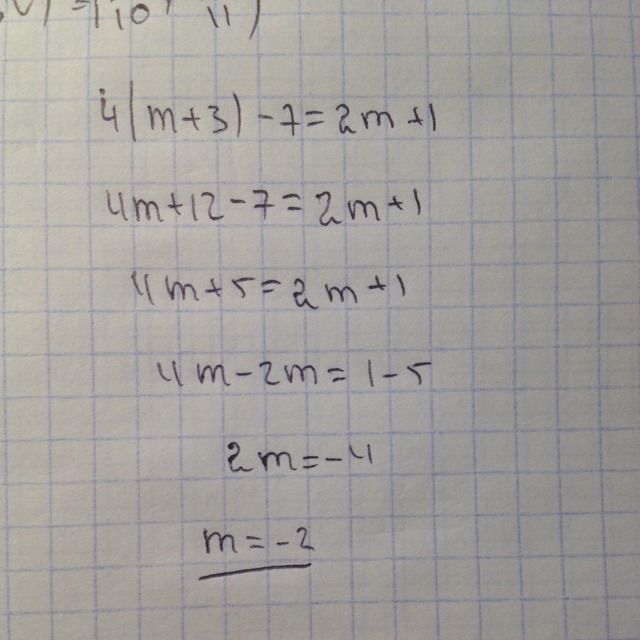 4(m+3)-7=2m+1
4m+12-7=2m+1
4m+5=2m+1
4m-2m=1-5
2m=-4
m=-2